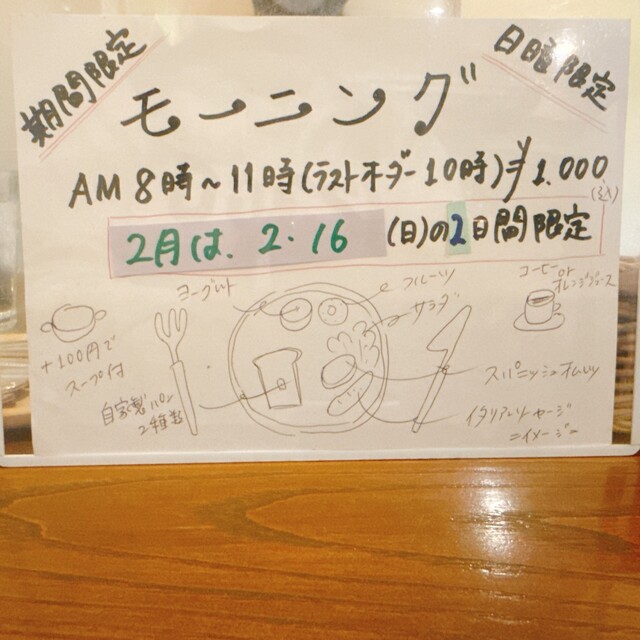 期間限定
日曜限定
モーニング
AM 8時～11時(ラストオーダー10時)¥1.000
(込)
2月は、2.16 (日)の2日間限定
ヨーグルト
フルーツ
サラダ
コーヒーor
オレンジジュース
+100円で
スープ付
自家製パン
2種類
スパニッシュオムレツ
イタリアンソーセージ
=イメージ=